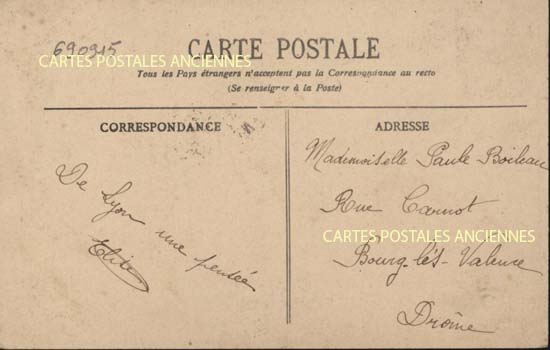 690915
CARTE POSTALE
CARTES POSTALES ANCIENNES
Tous les Pays étrangers n'acceptent pas la Correspondance au recto
(Se renseigner à la Poste)
CORRESPONDANCE
De Lyon une pensée
ADRESSE
Mademoiselle Paule Boileau
Rue Carnot
CARTES POSTALES ANCIENNES
Bourg-lès-Valence
Drôme